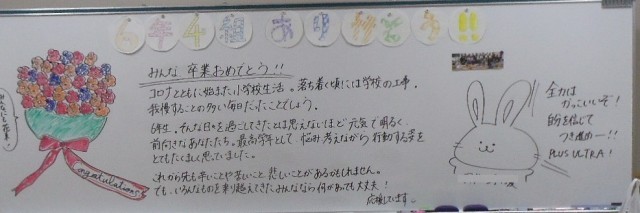 6年4組ありがとう!!
みんな 卒業おめでとう!!
コロナとともに始また小学校生活。落ち着く頃には学校の工事。
我慢することの多い毎日だったことでしょう。
6年生。そんな日々を過ごしてきたとは思えないほど元気で明るく
前向きなあなたたち。最高学年として、悩み考えながら行動する姿を
とてもたくましく思っていました。
これから先も辛いことや苦いこと 悲しいことがあるかもしれません。
でも、いろんなものを乗り越えてきたみんななら何があっても大丈夫!
応援しています。
みんなに花束!
ongratulations
全力は
かっこいいぞ!
自分を信じて
つき進め〜!!
PLUS ULTRA!